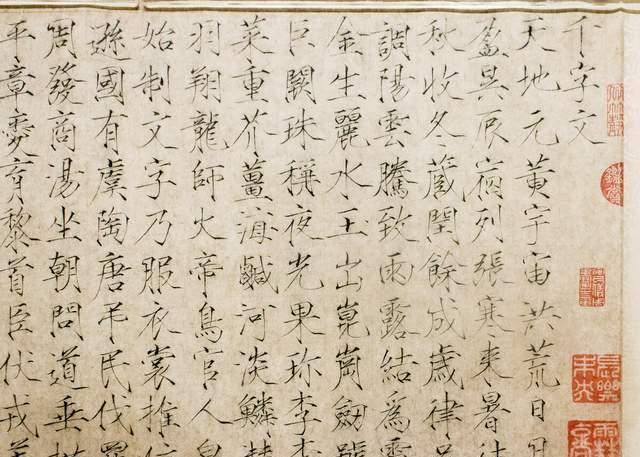 千字文
天地元黄宇宙洪荒日月
盈昃辰宿列張寒来暑
秋收冬藏閏餘成歲律
調陽雲騰致雨露結為
金生麗水玉出崑崗劍號
巨闕珠稱夜光果珎李
菜重芥薑海鹹河淡鱗
羽翔龍師火帝鳥官人皇
始制文字乃服衣裳推
遜國有虞陶唐弔民伐
周發商湯坐朝問道垂
平章愛育黎首臣伏戎